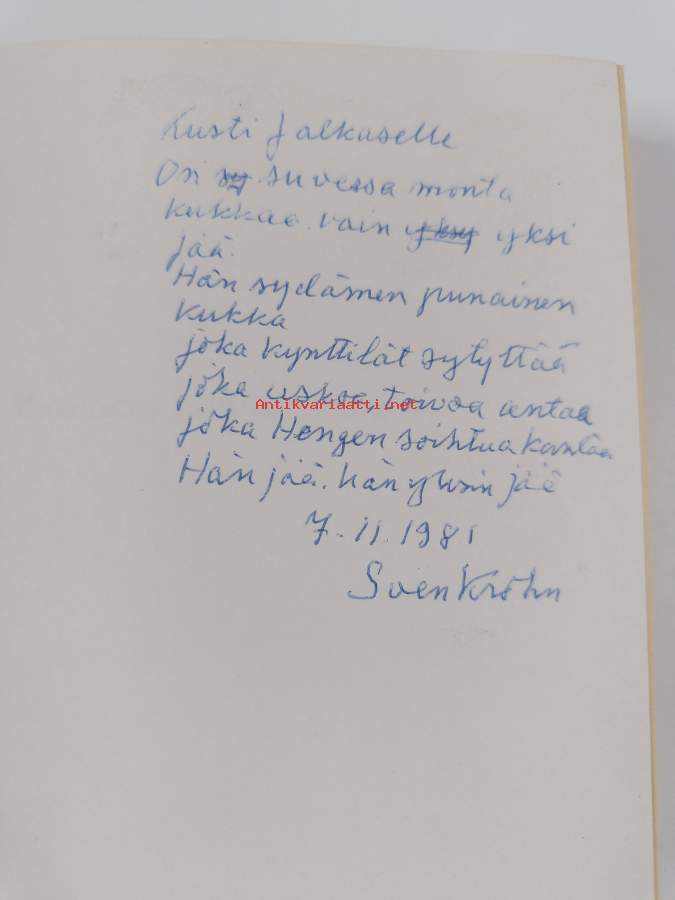 Kusti Jalkaselle
On sy suvessa monta
kukkaa. vain yksy yksi
jää.
Hän sydämen punainen
kukka
joka kynttilät sytyttää
joka uskoa, toivoa antaa
Antikvariaatti.net
joka Hengen soihtua kantaa
Hän jää. hän yksin jää
7.11.1981
Sven Krohn